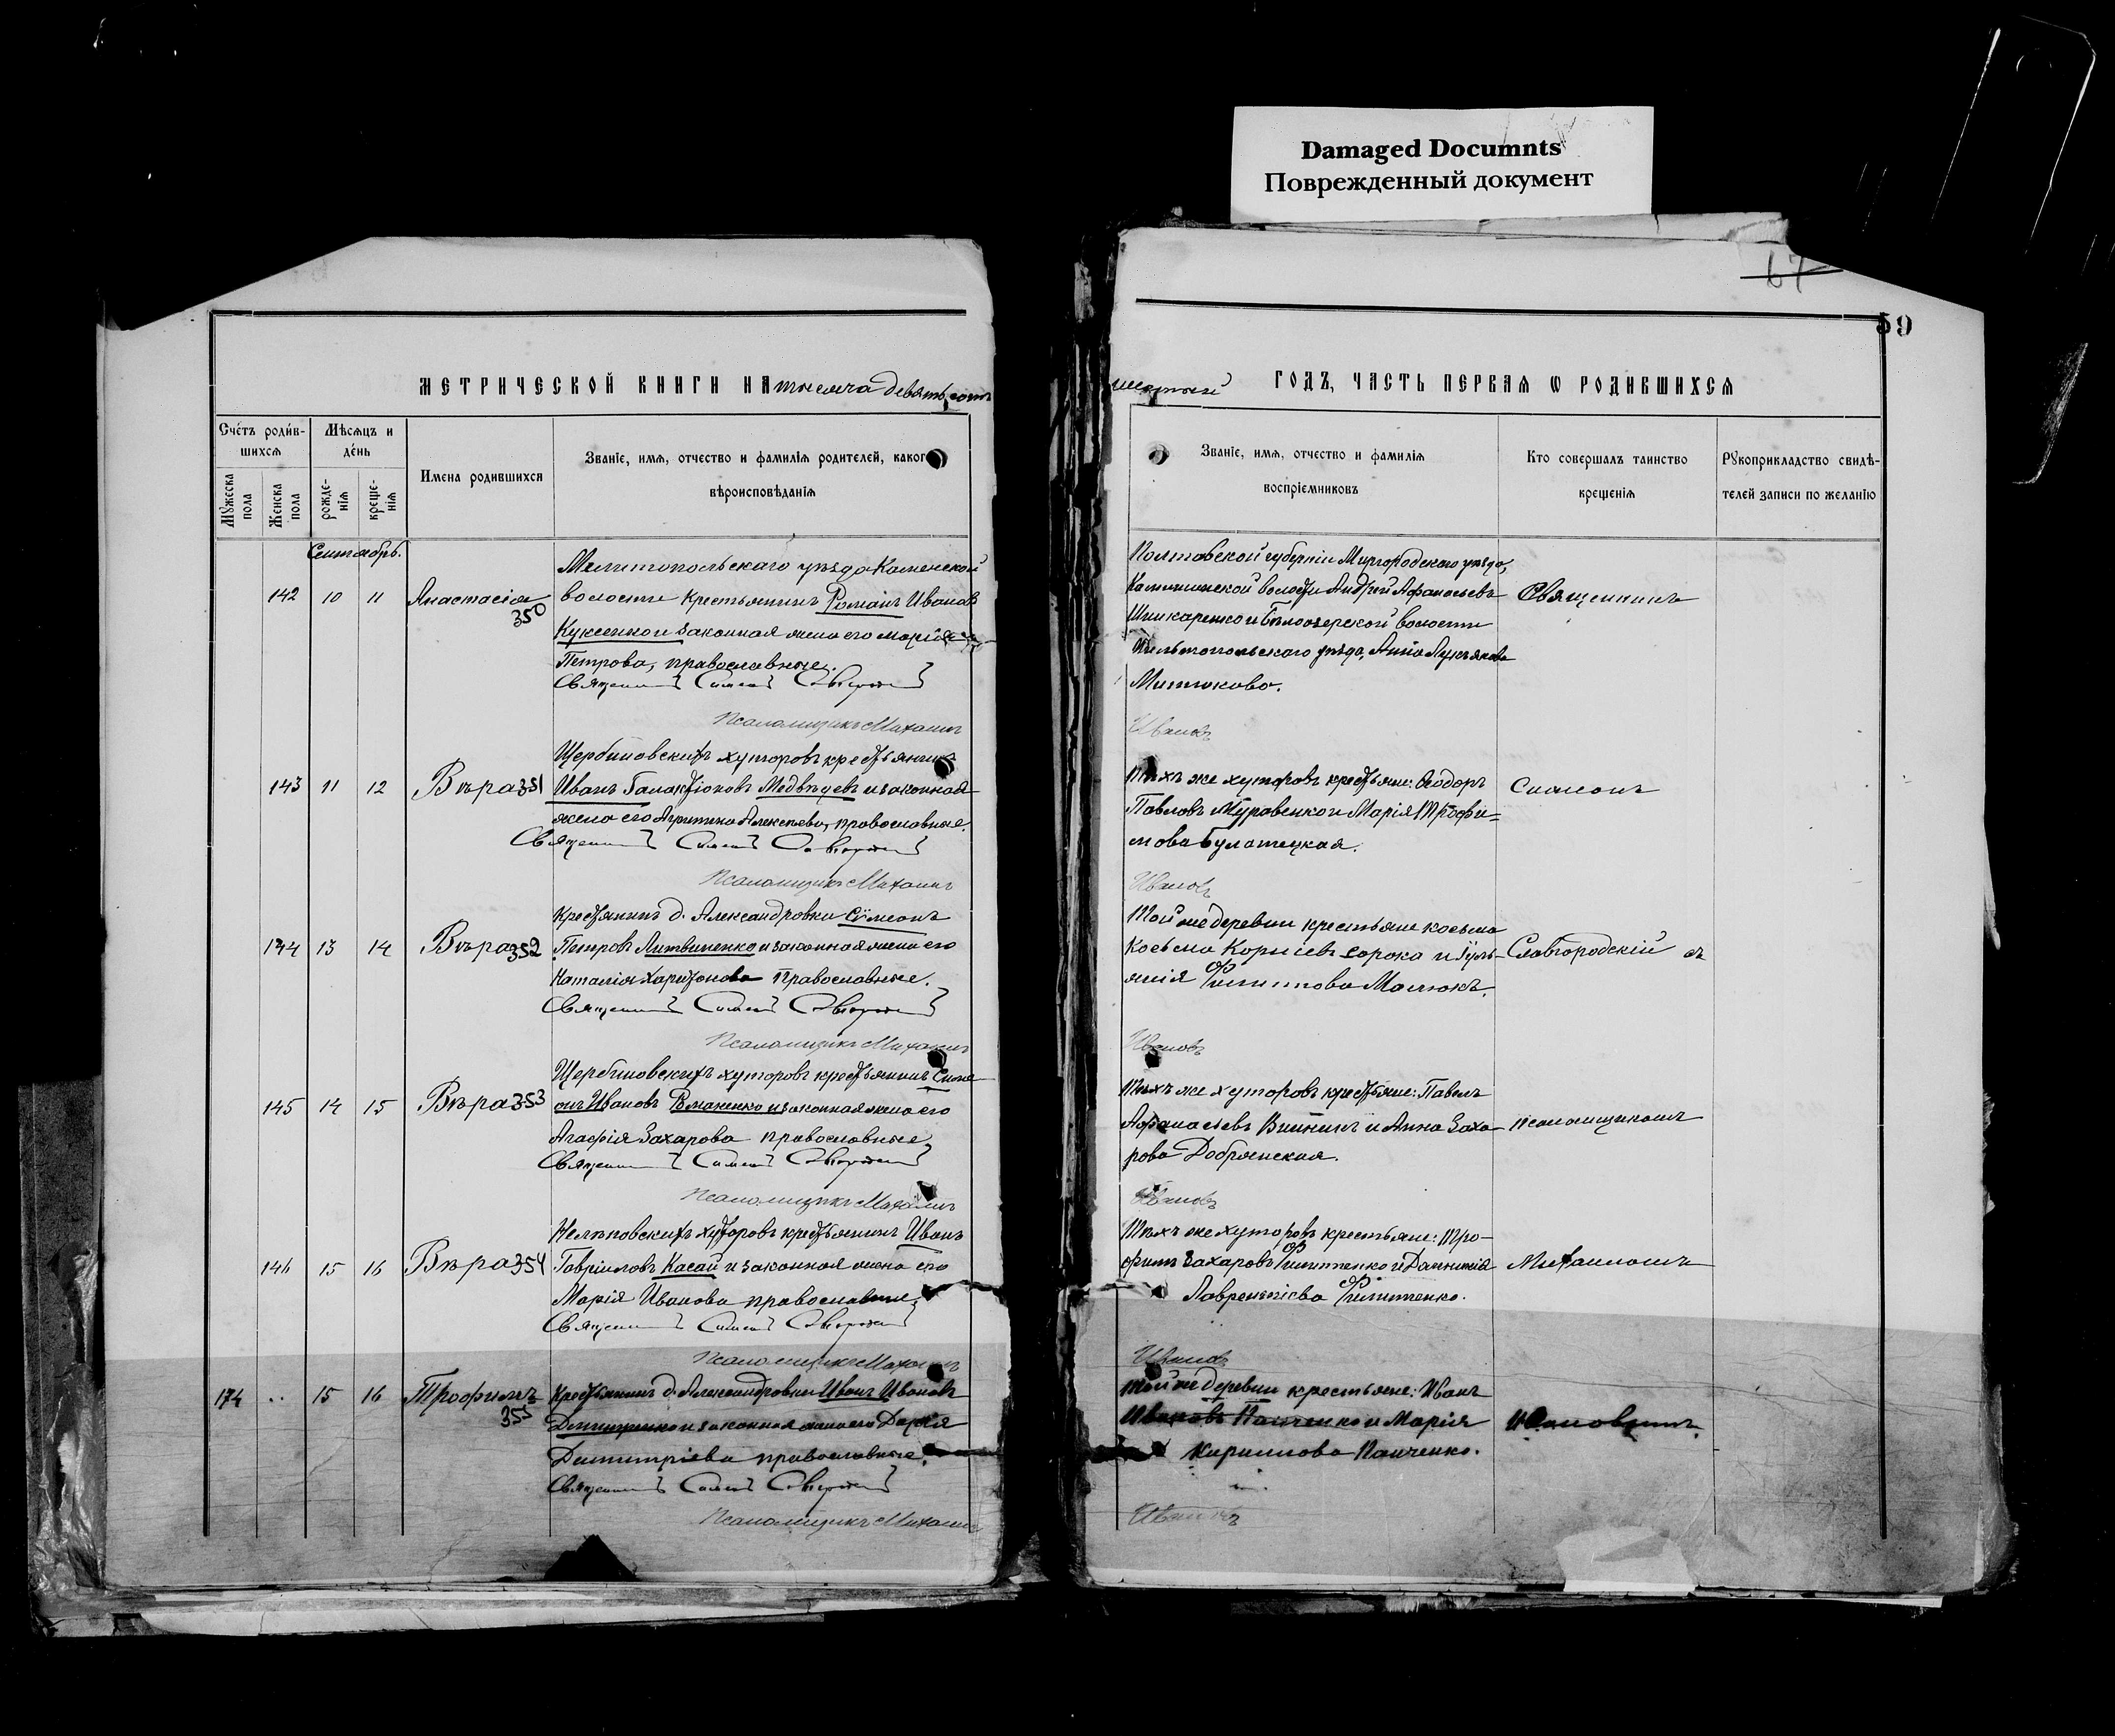 Damaged Documnts
Поврежденный документ
67
59
МЕТРИЧЕСКОЙ КНИГИ НА тысяча девятьсотъ
шестый ГОДЪ, ЧАСТЬ ПЕРВАЯ Ѡ РОДИВШИХСЯ
Счетъ родив-
шихся
Мѣсяцъ и
день
Имена родившихся
Званіе, имя, отчество и фамилія родителей, каког
вѣроисповѣданія
Мужеска
пола
Женска
пола
рожде-
нія
креще-
нія
Званіе, имя, отчество и фамилія
воспріемниковъ
Кто совершалъ таинство
крещенія
Рукоприкладство свидѣ-
телей записи по желанію
Сентябрь.
142 10 11 Анастасія 350
Мелитопольскаго уѣзда Каменской
волости крестьянинъ Романъ Ивановъ
Куксенко и законная жена его Марія
Петрова, православные.
Священникъ Симеонъ
Псаломщикъ Михаилъ
Полтавской губерніи Миргородскаго уѣзда,
волости Андрей Афанасьевъ
Шкаренко и Бѣлозерской волости
Мелитопольскаго уѣзда, Анна Лукьянова
Митюкова.
Ивановъ
Священникъ
143 11 12 Вѣра 351
Щербиновскихъ хуторовъ крестьянинъ
Иванъ Галактіоновъ Медвѣдевъ и законная
жена его Агрипина Алексѣева, православные.
Священникъ Симеонъ
Псаломщикъ Михаилъ
Тѣхъ же хуторовъ крестьяне: Ѳеодоръ
Павловъ Муравенко и Марія Трофи=
мова Булатецкая.
Ивановъ
Симеонъ
144 13 14 Вѣра 352
Крестьянинъ д. Александровки Сѵмеонъ
Петровъ Литвиненко и законная жена его
Наталія Харитонова православные.
Священникъ Симеонъ
Псаломщикъ Михаилъ
Той же деревни крестьяне Косьма
Косьма Корніевъ Сорока и Іуль-
янія Филиппова Малюкъ.
Ивановъ
Славгородскій съ
145 14 15 Вѣра 353
Щербиновскихъ хуторовъ крестьянинъ Симе-
онъ Ивановъ Романенко и законная жена его
Агафія Захарова православные,
Священникъ Симеонъ
Псаломщикъ Михаилъ
Тѣхъ же хуторовъ крестьяне: Павелъ
Афанасьевъ Винникъ и Анна Заха-
рова Добрянская.
Ивановъ
псаломщикомъ
146 15 16 Вѣра 354
хуторовъ крестьянинъ Иванъ
Гавріиловъ Касай и законная жена его
Марія Иванова православные,
Священникъ Симеонъ
Псаломщикъ Михаилъ
Тѣхъ же хуторовъ крестьяне: Тро-
фимъ Захаровъ Филиппенко и
Лаврентіева Филиппенко.
Ивановъ
Михаиломъ
174 15 16 Трофимъ 355
Крестьянинъ д. Александровки Иванъ Ивановъ
и законная жена его Дарія
Димитріева православные.
Священникъ Симеонъ
Псаломщикъ Михаилъ
Той же деревни крестьяне: Иванъ
Ивановъ Панченко и Марія
Кириллова Панченко.
Ивановъ
Ивановымъ.